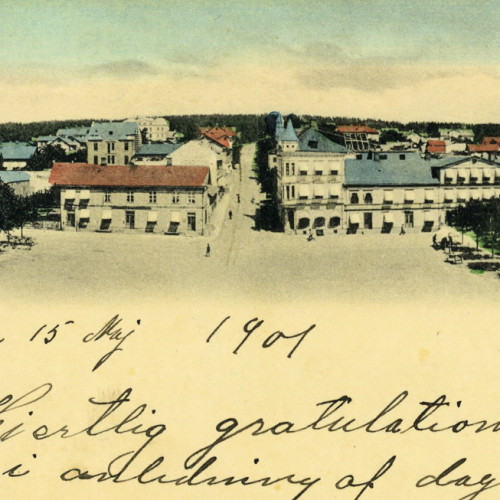 15 Maj 1901
Hjertlig gratulation
i anledning af dag